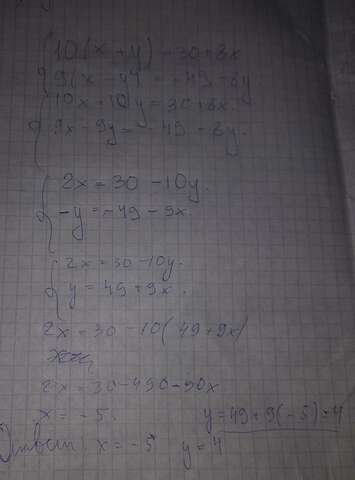 10(x + y) = 30 + 8x
9(x - y) = -49 - 8y
10x + 10y = 30 + 8x.
9x - 9y = -49 - 8y.
2x = 30 - 10y.
-y = -49 - 9x
2x = 30 - 10y.
y = 49 + 9x.
2x = 30 - 10(49 + 9x)
2x = 30 - 490 - 90x
x = -5. y = 49 + 9(-5) = 4
Ответ x = -5 y = 4